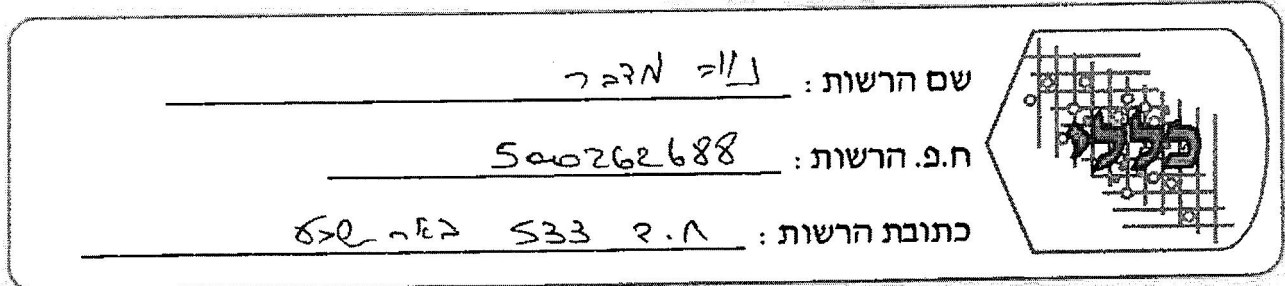 כללי
שם הרשות : נווה מדבר
ח.פ. הרשות : 500262688
כתובת הרשות : ת.ד 533 באר שבע